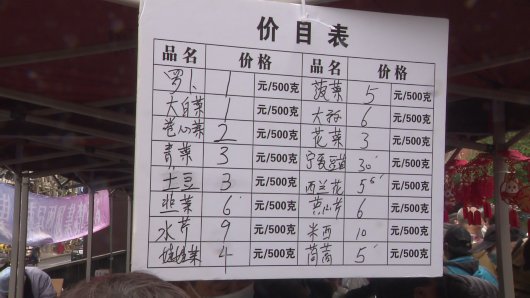 价目表
品名 价格 品名 价格
罗卜 1 元/500克 菠菜 5 元/500克
大白菜 1 元/500克 大孙 6 元/500克
卷心菜 2 元/500克 花菜 3 元/500克
青菜 3 元/500克 宁夏豆苗 30 元/500克
土豆 3 元/500克 西兰花 5 元/500克
韭菜 6 元/500克 6 元/500克
水芹 9 元/500克 米西 10 元/500克
娃娃菜 4 元/500克 茼蒿 5 元/500克